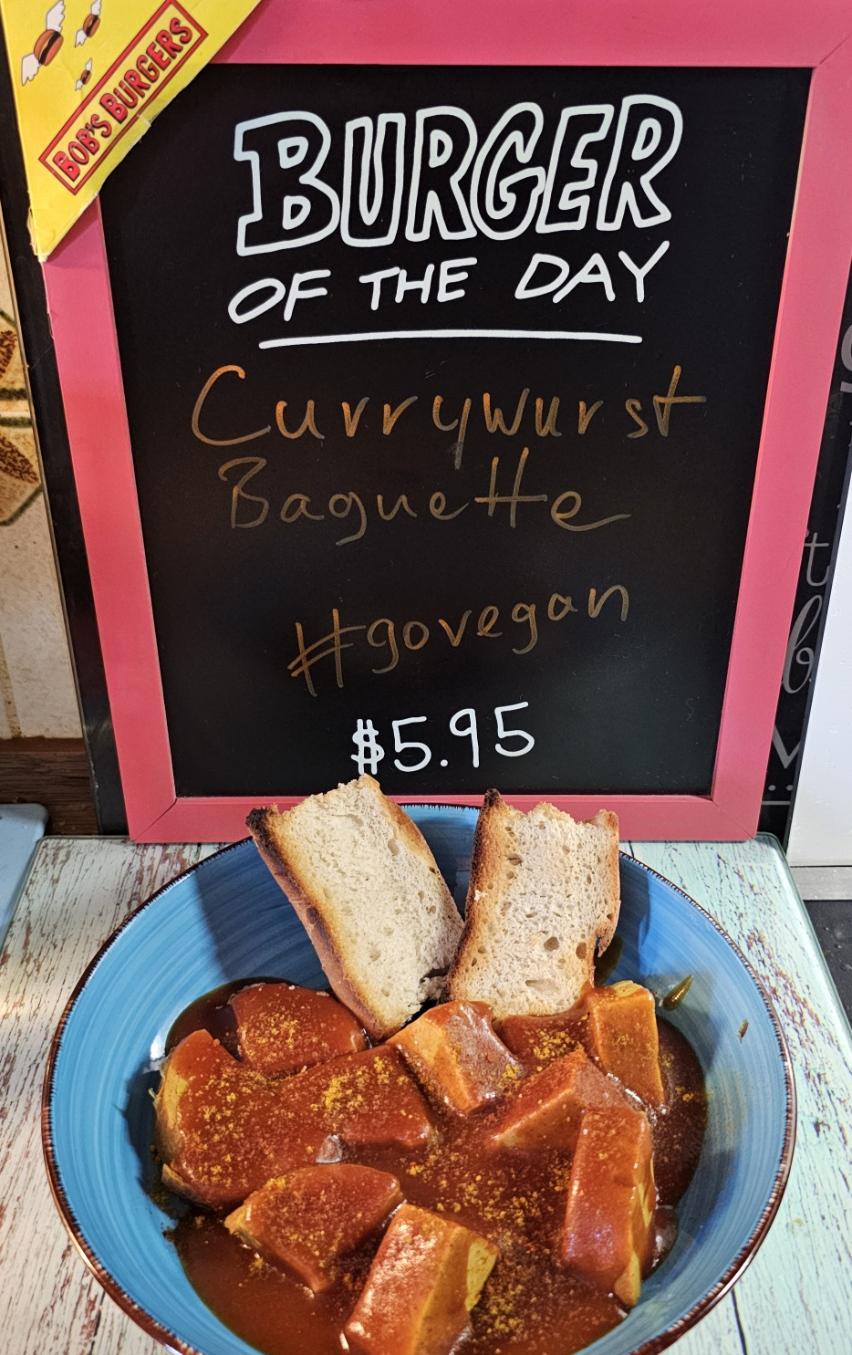 BOB'S BURGERS
BURGER
OF THE DAY
Currywurst
Baguette
#govegan
$5.95